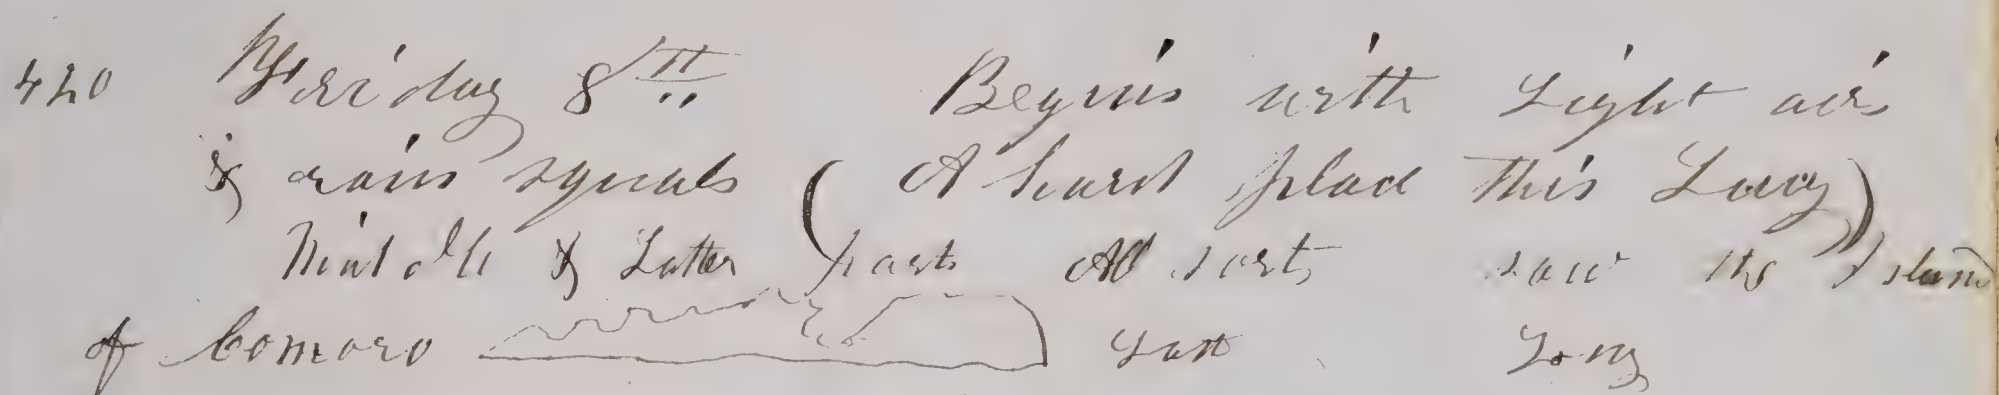 420 Friday 8th Begins with Light airs
& rain squals (A hard place this Lucy)
Middle & Latter parts All sorts saw the Island
of Comoro Latt Long